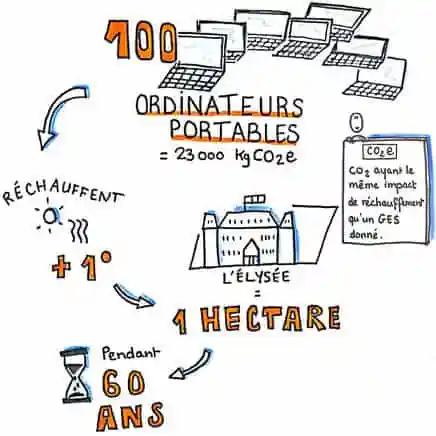 100
ORDINATEURS
PORTABLES
= 23 000 KgCO2e
CO2e
CO2 ayant le
même impact
de réchauffement
qu'un GES
donné.
RÉCHAUFFENT
+ 1°
L'ÉLYSÉE
=
1 HECTARE
Pendant
60
ANS